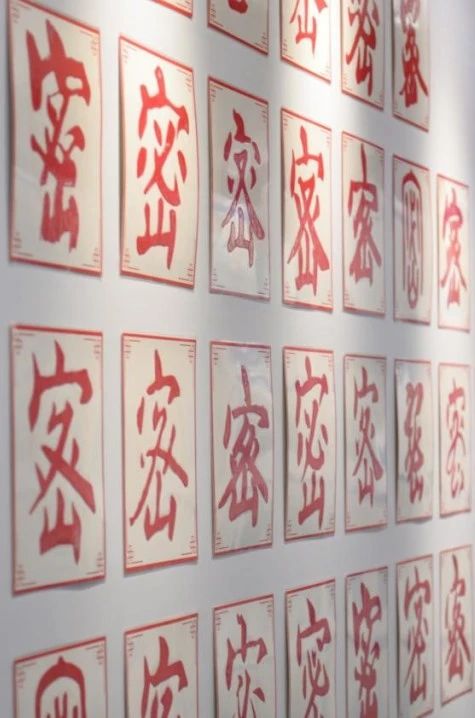 密 密 密
密 密 密 密 密 密 密
密 密 密 密 密 密 密
密 密 密 密 密